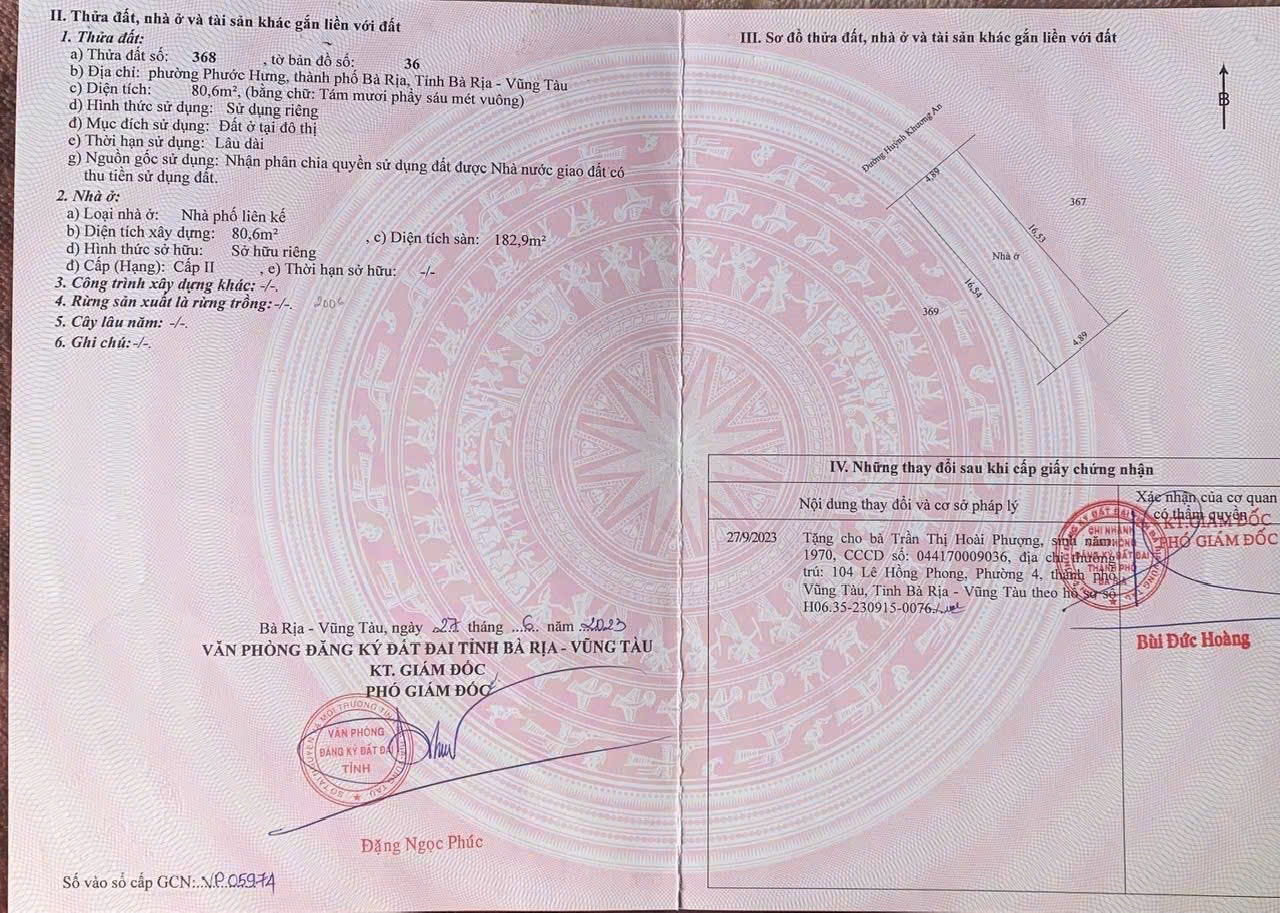 II. Thửa đất, nhà ở và tài sản khác gắn liền với đất
1. Thửa đất:
a) Thửa đất số: 368 , tờ bản đồ số: 36
b) Địa chỉ: phường Phước Hưng, thành phố Bà Rịa, Tỉnh Bà Rịa - Vũng Tàu
c) Diện tích: 80,6m², (bằng chữ: Tám mươi phẩy sáu mét vuông)
d) Hình thức sử dụng: Sử dụng riêng
đ) Mục đích sử dụng: Đất ở tại đô thị
e) Thời hạn sử dụng: Lâu dài
g) Nguồn gốc sử dụng: Nhận phân chia quyền sử dụng đất được Nhà nước giao đất có
thu tiền sử dụng đất.
2. Nhà ở:
a) Loại nhà ở: Nhà phố liên kế
b) Diện tích xây dựng: 80,6m² , c) Diện tích sàn: 182,9m²
d) Hình thức sở hữu: Sở hữu riêng
đ) Cấp (Hạng): Cấp II , e) Thời hạn sở hữu: -/-
3. Công trình xây dựng khác: -/-.
4. Rừng sản xuất là rừng trồng: -/-.
5. Cây lâu năm: -/-.
6. Ghi chú: -/-.
Bà Rịa - Vũng Tàu, ngày 27 tháng 6 năm 2023
VĂN PHÒNG ĐĂNG KÝ ĐẤT ĐAI TỈNH BÀ RỊA - VŨNG TÀU
KT. GIÁM ĐỐC
PHÓ GIÁM ĐỐC
VĂN PHÒNG
ĐĂNG KÝ ĐẤT ĐAI
TỈNH
Đặng Ngọc Phúc
Số vào sổ cấp GCN: VP.05974
III. Sơ đồ thửa đất, nhà ở và tài sản khác gắn liền với đất
B
Đường Huỳnh Khương An
4,89
367
16,53
Nhà ở
16,54
369
4,89
IV. Những thay đổi sau khi cấp giấy chứng nhận
Nội dung thay đổi và cơ sở pháp lý
Xác nhận của cơ quan
có thẩm quyền
27/9/2023
Tặng cho bà Trần Thị Hoài Phượng, sinh năm:
1970, CCCD số: 044170009036, địa chỉ thường
trú: 104 Lê Hồng Phong, Phường 4, thành phố
Vũng Tàu, Tỉnh Bà Rịa - Vũng Tàu theo hồ sơ số
H06.35-230915-0076
KT.GIÁM ĐỐC
PHÓ GIÁM ĐỐC
CHI NHÁNH
VĂN PHÒNG
ĐĂNG KÝ ĐẤT ĐAI
THÀNH PHỐ
BÀ RỊA
Bùi Đức Hoàng